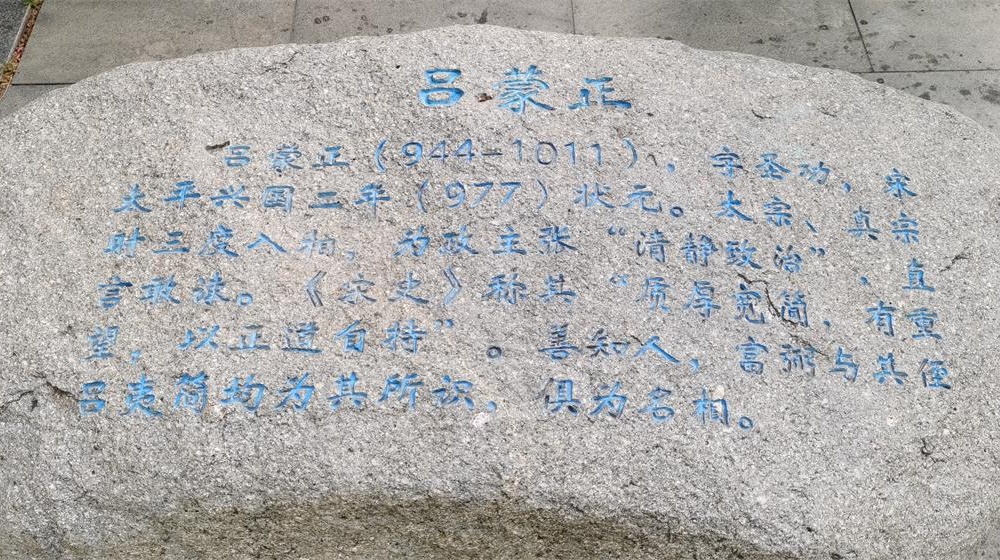 吕蒙正
吕蒙正（944-1011），字圣功、宋
太平兴国二年（977）状元。太宗、真宗
时三度入相，为政主张“清静致治”、直
言敢谏。《宋史》称其“质厚宽简，有重
望，以正道自持”。善知人，富弼与其侄
吕夷简均为其所识，俱为名相。